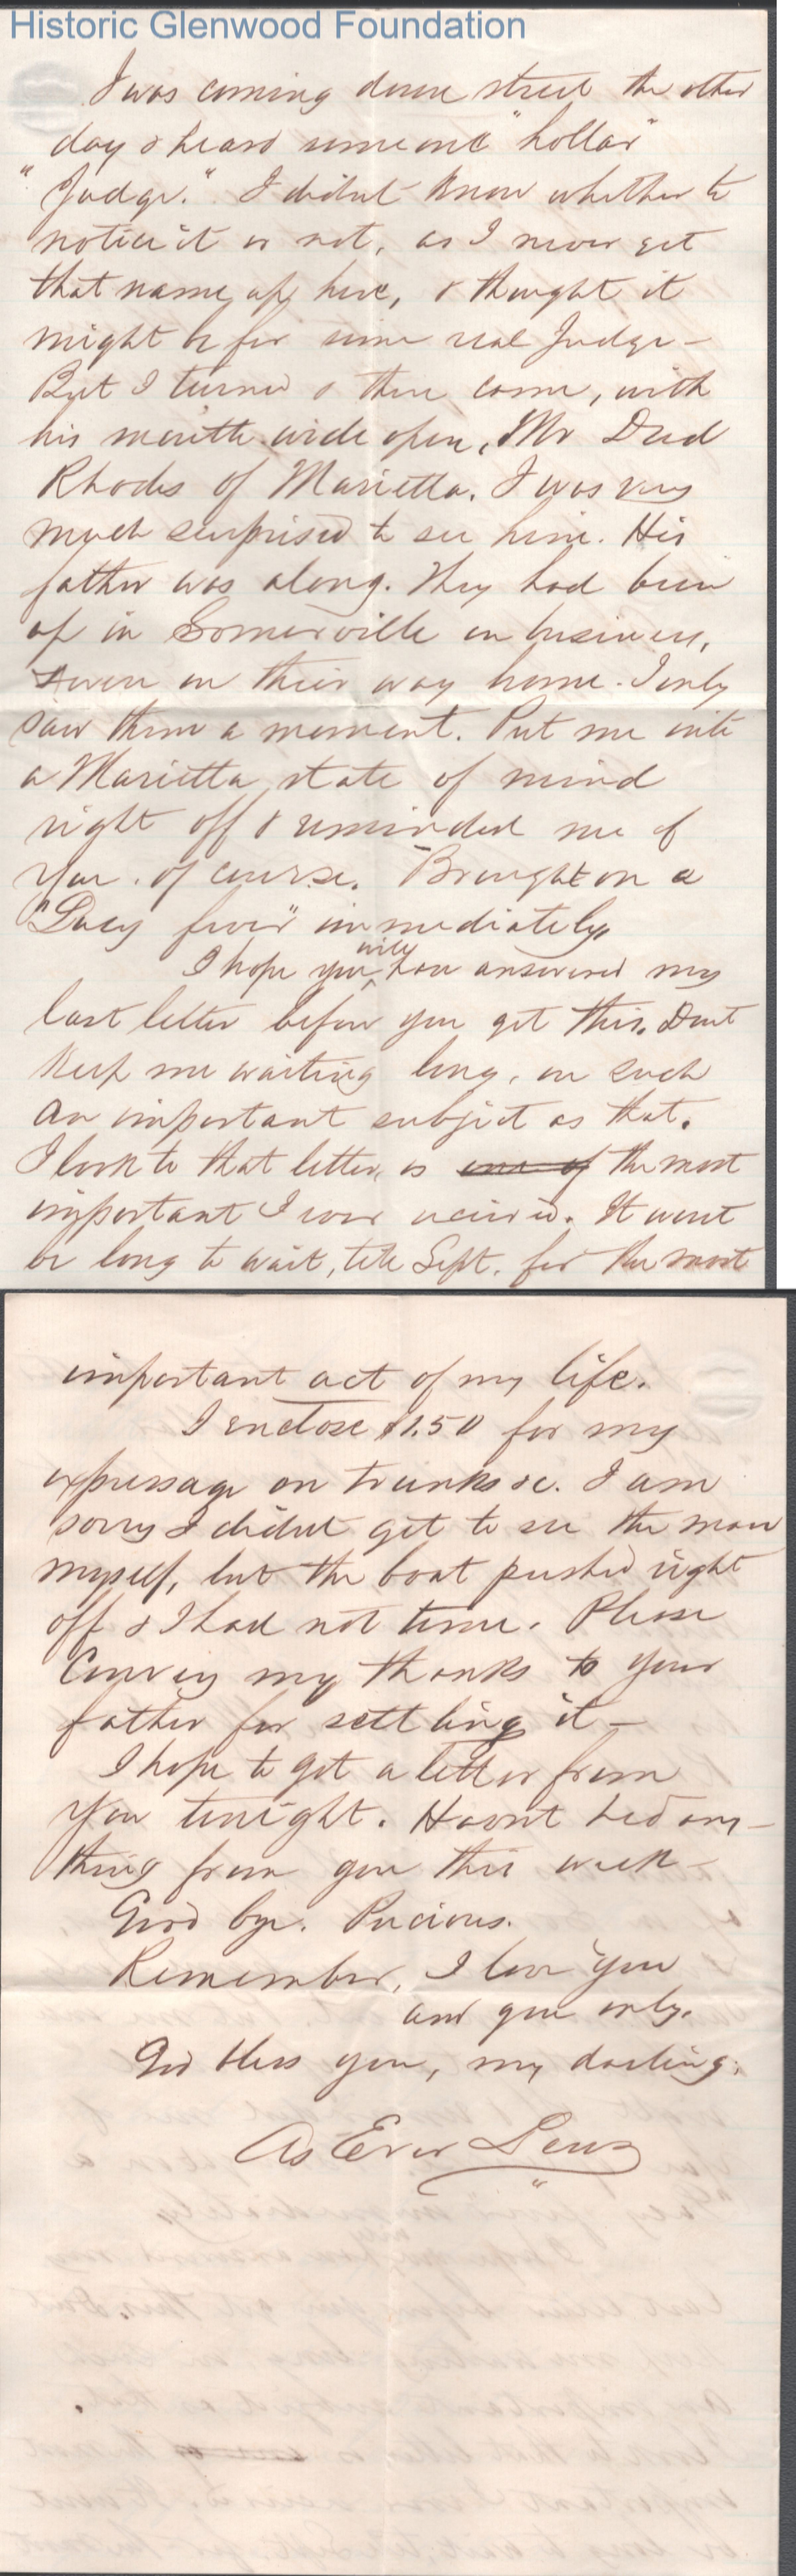 Historic Glenwood Foundation
I was coming down street the other
day & heard someone "hollar"
"Judge." I didnt know whether to
notice it or not, as I never get
that name up here, & thought it
might be for some real Judge –
But I turned & there come, with
his mouth wide open, Mr Dud
Rhodes of Marietta. I was very
much surprised to see him. His
father was along. They had been
up in Somerville on business,
& were on their way home. I only
saw them a moment. Put me into
a Marietta state of mind
right off & reminded me of
you. of course. Brought on a
"Lucy fever" immediately
will
I hope you have answered my
last letter before you get this. Dont
keep me waiting long, on such
an important subject as that.
I look to that letter, as one of the most
important I ever received. It wont
be long to wait, till Sept. for the most
important act of my life.
I enclose $1.50 for my
expressage on trunks &c. I am
sorry I didnt get to see the man
myself, but the boat pushed right
off & I had not time. Please
Convey my thanks to your
father for settling it –
I hope to get a letter from
you tonight. Havnt had any-
thing from you this week –
Good bye. Precious.
Remember, I love you
and you only.
God bless you, my darling.
As Ever